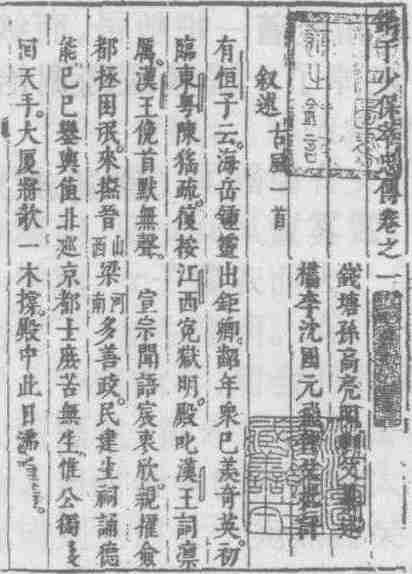 鐫于少保萃忠傳卷之一
錢塘孫高亮明卿父纂述
檇李沈國元飛仲父批評
叙述 古風一首
有恒子云。海岳鍾靈出鉅卿。齠年衆已羨奇英。初
臨東粤陳猺疏。復按江西寃獄明。殿叱漢王詞凛
厲。漢王俛首默無聲。 宣宗聞語宸衷欣。親擢僉
都拯困氓。來撫晉山西梁河南多善政。民建生祠誦德
能。己巳鑾輿值北廵。京都士庶苦無生。惟公獨
回天手。大厦將欹一木撑。殿中此日沸